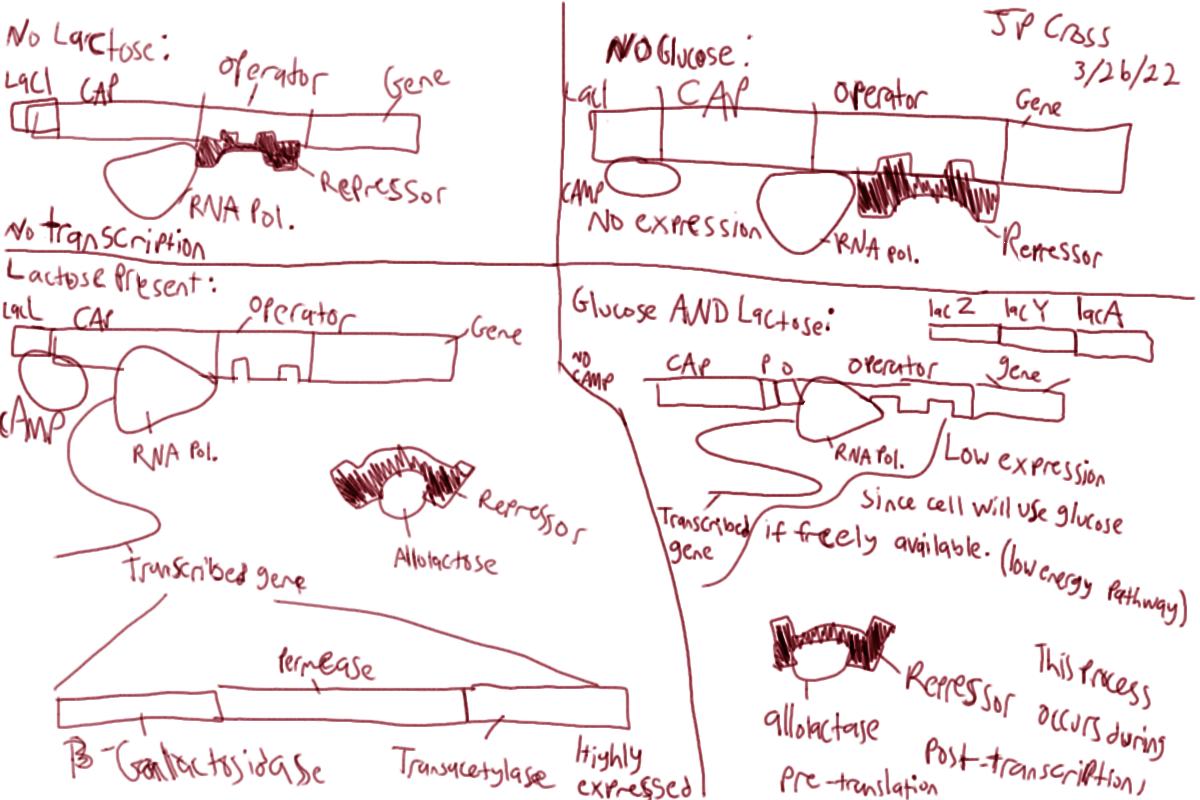 No Lactose:
LacI CAP Operator Gene
RNA Pol. Repressor
No transcription
NO Glucose:
JP Cross
3/26/22
LacI CAP Operator Gene
CAMP
No expression
RNA Pol.
Repressor
Lactose Present:
LacL CAP Operator Gene
cAMP
RNA Pol.
Repressor
Allolactose
Transcribed gene
Permease
B-Ganlactosidase Transacetylase Highly
expressed
Glucose AND Lactose:
lacZ lacY lacA
NO
CAMP
CAP P O Operator gene
RNA Pol.
Low expression
since cell will use glucose
if freely available. (low energy pathway)
Transcribed
gene
Repressor
allolactase
This Process
occurs during
Post-transcription,
Pre-translation